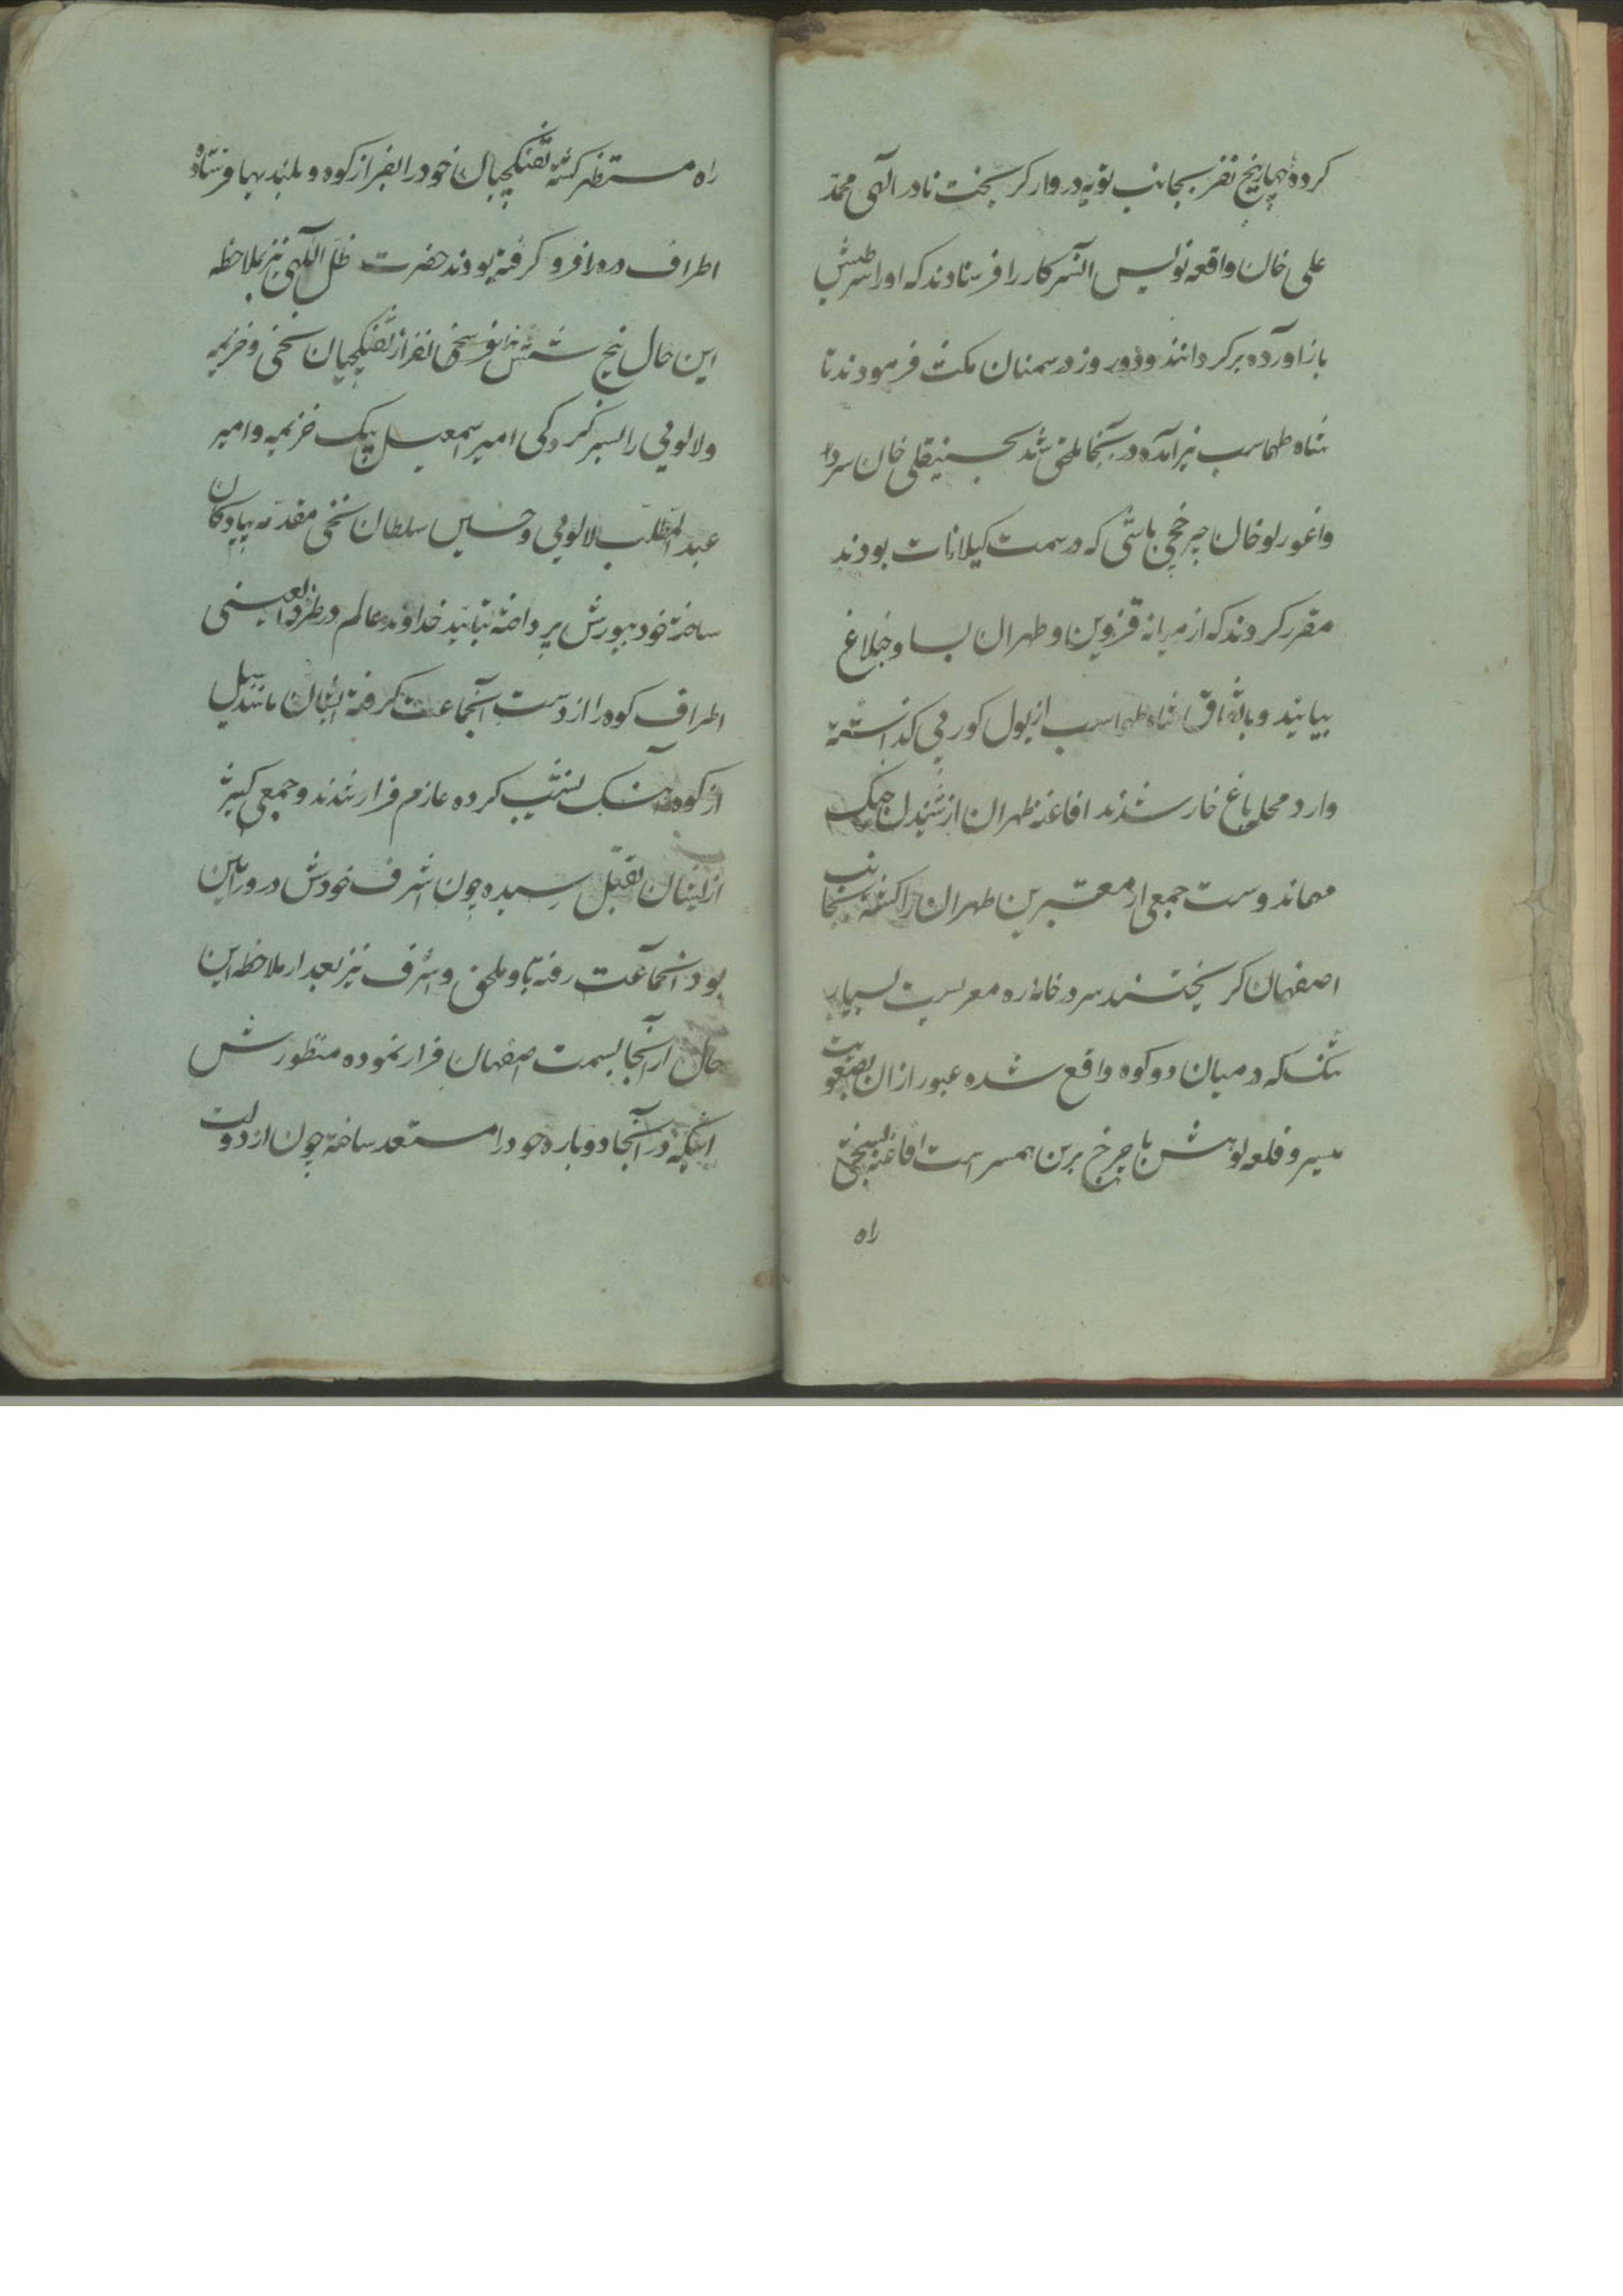 کرده چهار پنج نفر بجانب تویه دروار کریخت نادر الهی محمد
علی خان واقعه نویس السرکار را فرستادند که او را
باز آورده برکردانند و دو روز در سمنان مکث فرمودند تا
شاه طهماسب نیز آمده در آنجا ملحق شد حسینقلی خان سردار
واغورلو خان چرخچی باشی که در سمت کیلانات بودند
مقرر کردند که از میانه قزوین و طهران بساوجبلاغ
بیایند و باتفاق شاه طهماسب از پول کورپی کذشته
وارد محل باغ خار شدند افاغنه طهران از شنیدن جنک
مهماندوست جمعی از معتبرین طهران را کشته بجانب
اصفهان کریختند سردر خانه ره معریست بسیار
تنک که در میان دو کوه واقع شده عبور از ان بصعوبت
میسر و قلعه لوهش با چرخ برین همسر است افاغنه
راه
راه مستظهر کشته تفنکچیان خود را بفراز کوه و بلندیها فرستاده
اطراف دره را فرو کرفته بودند حضرت ظل اللهی نیز بملاحظه
این حال پنج شش هزار نفر از تفنکچیان سخی و خزیمه
و لالویی را بسرکردکی امیر اسمعیل بیک خزیمه و امیر
عبدالمطلب لالویی و حسین سلطان سخی مقدمه پیادکان
ساخته خود بیورش پرداخته بتایید خداوند عالم در طرفة العینی
اطراف کوه را از دست انجماعت کرفته ایشان مانند سیل
از کوه آهنک نشیب کرده عازم فرار شدند و جمعی کثیر
از ایشان بقتل رسیده چون اشرف خودش در ورامین
بود انجماعت رفته باو ملحق و اشرف نیز بعد از ملاحظه این
حال از آنجا بسمت اصفهان فرار نموده منظورش
اینکه در آنجا دوباره خود را مستعد ساخته چون از دولت